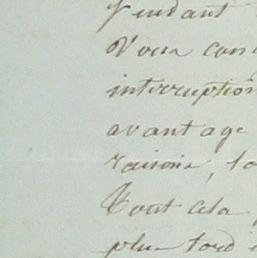 Pendant
Vous cons
interruption
avantage
raisons, to
Tout cela
plus tard